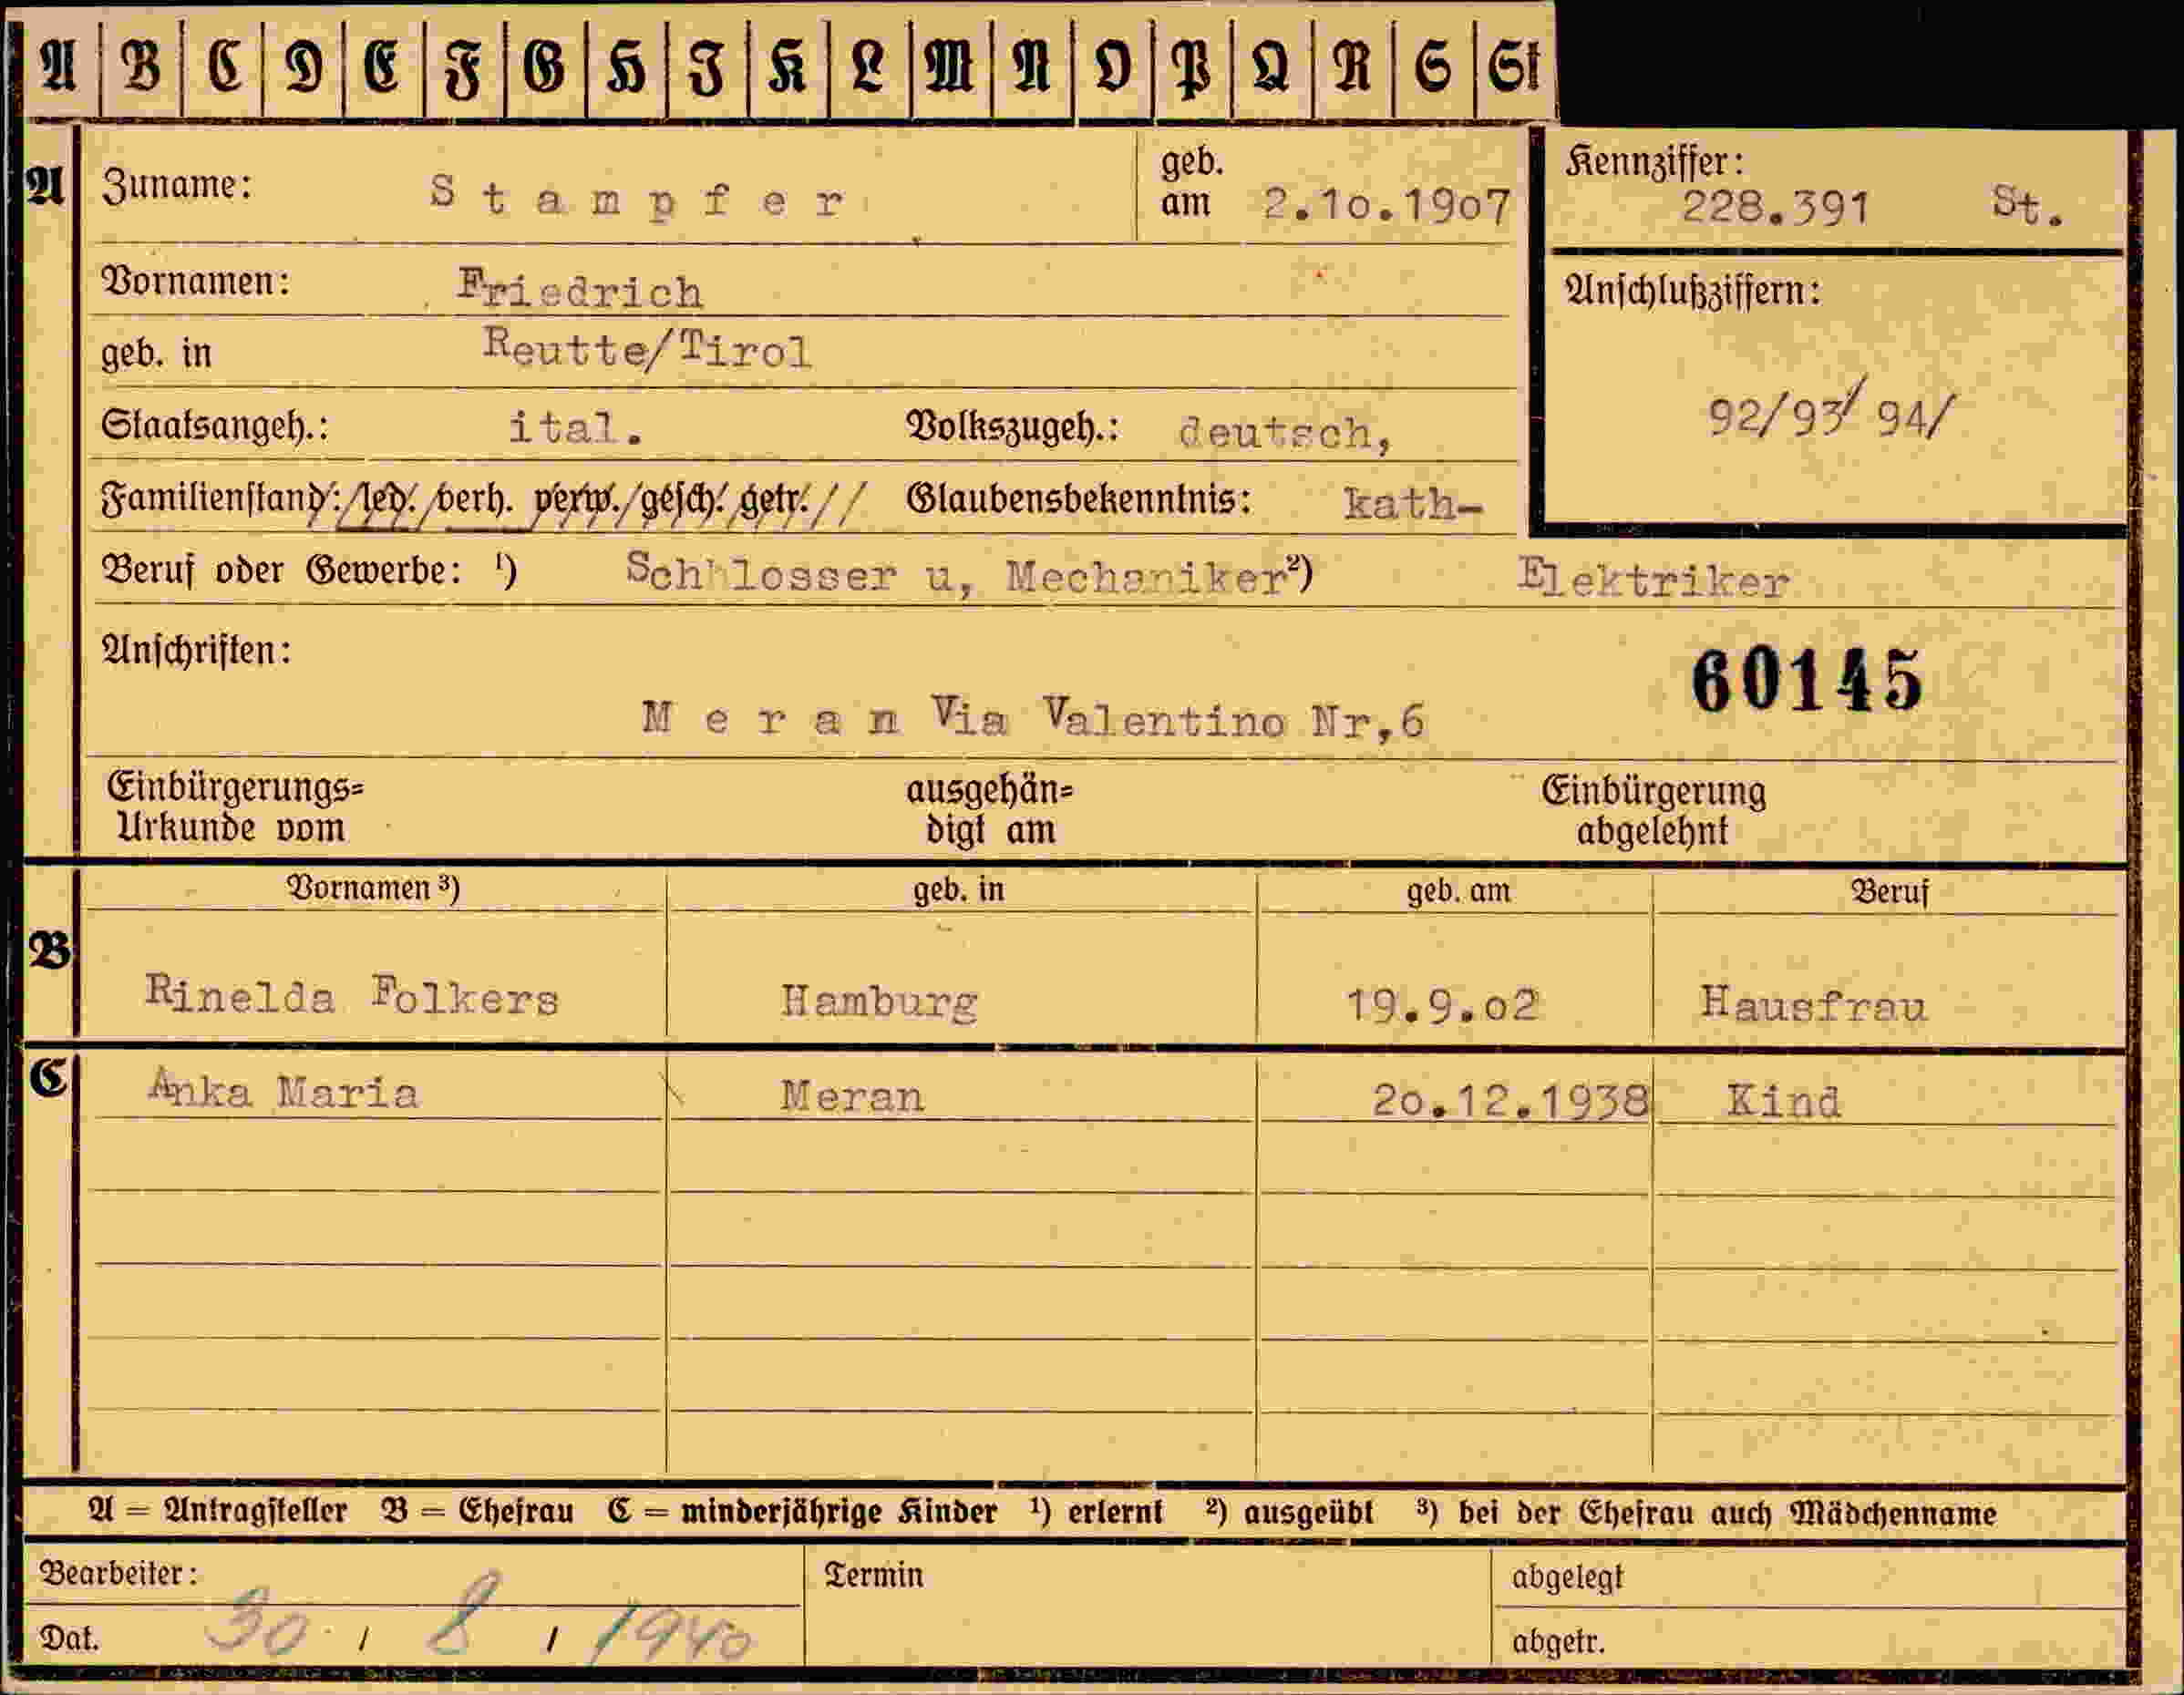 A B C D E F G H I K L M N O P Q R S St
A Zuname: Stampfer geb. am 2.10.1907 Kennziffer: 228.391 St.
Vornamen: Friedrich Anschlußziffern:
geb. in Reutte/Tirol
92/93/ 94/
Staatsangeh.: ital. Volkszugeh.: deutsch,
Familienstand: /led./ verh. verw./gesch. /getr. // Glaubensbekenntnis: kath-
Beruf oder Gewerbe: ¹) Schlosser u, Mechaniker ²) Elektriker
Anschriften:
60145
Meran Via Valentino Nr,6
Einbürgerungs= ausgehän= Einbürgerung
Urkunde vom digt am abgelehnt
Vornamen ³) geb. in geb. am Beruf
B Rinelda Folkers Hamburg 19.9.02 Hausfrau
C Anka Maria Meran 20.12.1938 Kind
A = Antragsteller B = Ehefrau C = minderjährige Kinder ¹) erlernt ²) ausgeübt ³) bei der Ehefrau auch Mädchenname
Bearbeiter: Termin abgelegt
Dat. 30 / 8 / 1940 abgetr.